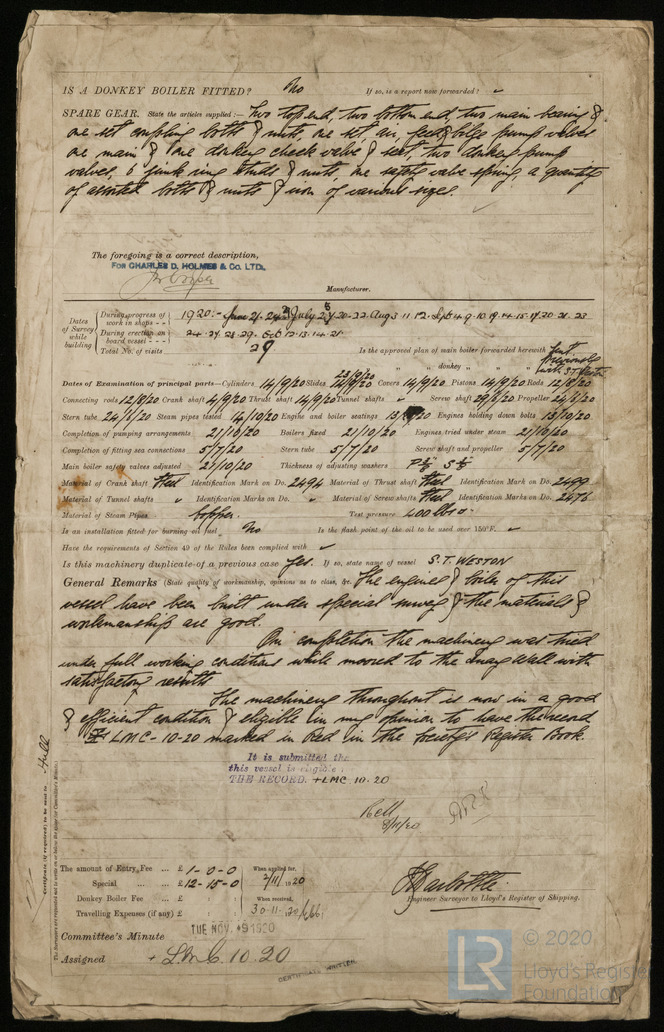 IS A DONKEY BOILER FITTED? No If so, is a report now forwarded?
SPARE GEAR. State the articles supplied:— Two top end, two bottom end, two main bearing &
one set coupling bolts & nuts, one set air, feed & bilge pump valves
one main & one donkey check valve & seat, two donkey pump
valves, 6 junk ring studs & nuts, one safety valve spring, a quantity
of assorted bolts & nuts & iron of various sizes.
The foregoing is a correct description,
FOR CHARLES D. HOLMES & Co. LTD.
Manufacturer.
Dates of Survey while building
During progress of work in shops - - 1920:- June 21. 24 July 20. 22. Aug 3 11 12. Sept 4. 9. 10 14. 15. 17 20. 21. 23
During erection on board vessel - - - 24. 27. 28. 29. Oct 12. 13. 14. 21.
Total No. of visits 29
Is the approved plan of main boiler forwarded herewith
" " " donkey " " "
23/9/20
Dates of Examination of principal parts—Cylinders 14/9/20 Slides 14/9/20 Covers 14/9/20 Pistons 14/9/20 Rods 12/8/20
Connecting rods 12/8/20 Crank shaft 4/9/20 Thrust shaft 14/9/20 Tunnel shafts Screw shaft Propeller
Stern tube Steam pipes tested 14/10/20 Engine and boiler seatings Engines holding down bolts 13/10/20
Completion of pumping arrangements 21/10/20 Boilers fixed 21/10/20 Engines tried under steam 21/10/20
Completion of fitting sea connections 5/7/20 Stern tube 5/7/20 Screw shaft and propeller 5/7/20
Main boiler safety valves adjusted 21/10/20 Thickness of adjusting washers
Material of Crank shaft Steel Identification Mark on Do. 2494 Material of Thrust shaft Steel Identification Mark on Do. 2499
Material of Tunnel shafts Identification Marks on Do. Material of Screw shafts Steel Identification Marks on Do. 2476
Material of Steam Pipes Copper. Test pressure 400 lbs
Is an installation fitted for burning oil fuel No Is the flash point of the oil to be used over 150°F.
Have the requirements of Section 49 of the Rules been complied with
Is this machinery duplicate of a previous case Yes. If so, state name of vessel S.T. WESTON
General Remarks (State quality of workmanship, opinions as to class, &c. The engines & boiler of this
vessel have been built under special survey & the materials &
workmanship are good.
On completion the machinery was tried
under full working conditions while moored to the Quay Wall with
satisfactory results
The machinery throughout is now in a good
& efficient condition & eligible in my opinion to have the record
LMC - 10-20 marked in Red in the Society's Register Book.
It is submitted tha
this vessel is eligible
THE RECORD. + LMC 10.20
The amount of Entry Fee ... £ 1-0-0
Special ... ... £ 12-15-0
Donkey Boiler Fee ... £
Travelling Expenses (if any) £
When applied for,
2/11/1920
When received,
30-11-20
Engineer Surveyor to Lloyd's Register of Shipping.
Committee's Minute TUE NOV. 9 1920
Assigned + LMC 10.20
CERTIFICATE WRITTEN.
Certificate (if required) to be sent to Hull
© 2020
LR
Lloyd's Register
Foundation